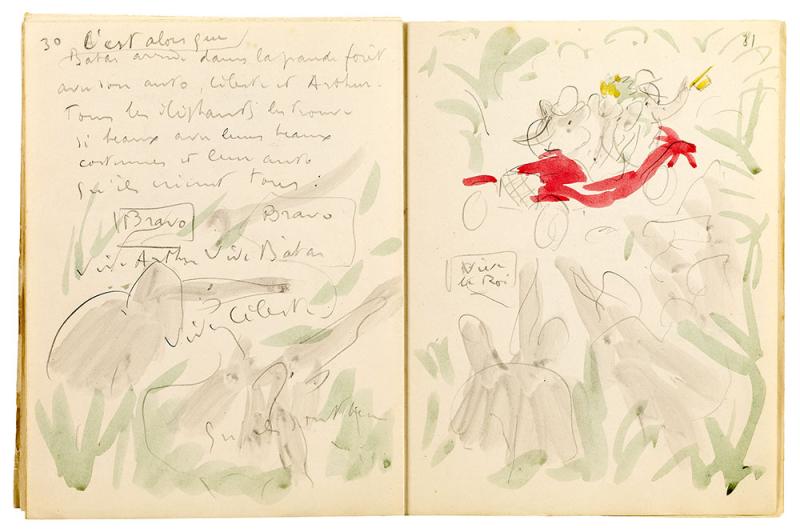 30 C'est alors que
Babar arrive dans la grande forêt
avec son auto, Céleste et Arthur.
Tous les éléphants les trouve
si beaux avec leurs beaux
costumes et leur auto
qu'ils crient tous :
Bravo Bravo
Vive Arthur Vive Babar
Vive Céleste
31
Vive
le Roi